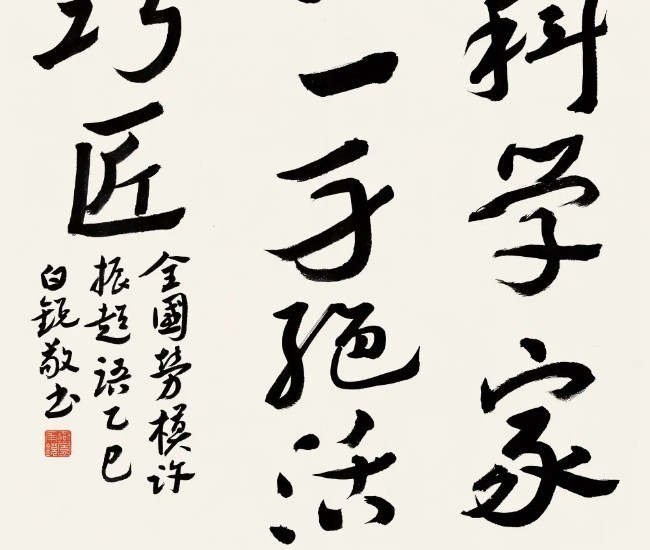 科学家
一手绝活
巧匠
全國勞模许
振超語乙巳
白锐敬书